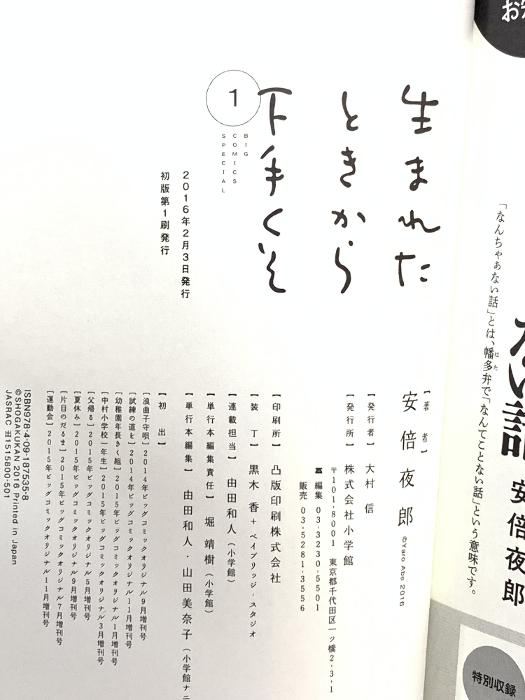 お知
「なんちゃあない話」とは、幡多弁で「なんてことない話」という意味です。
はた
ない話
安倍夜郎
特別収録
生まれた
ときから
下手くそ
1
BIG
COMICS
SPECIAL
2016年2月3日発行
初版第1刷発行
【著者】
安倍夜郎
©Yaro Abe 2016
【発行者】 大村 信
【発行所】 株式会社小学館
〒101-8001 東京都千代田区一ツ橋2-3-1
編集 03-3230-5501
販売 03-5281-3556
【印刷所】 凸版印刷株式会社
【装丁】 黒木 香+ベイブリッジ・スタジオ
【連載担当】 由田和人(小学館)
【単行本編集責任】 堀 靖樹(小学館)
【単行本編集】 由田和人・山田美奈子(小学館ナ
【初出】
［浪曲子守唄］2014年ビッグコミックオリジナル9月増刊号
［試練の道を］2014年ビッグコミックオリジナル11月増刊号
［幼稚園年長きく組］2015年ビッグコミックオリジナル1月増刊号
［中村小学校一年生］2015年ビッグコミックオリジナル3月増刊号
［父帰る］2015年ビッグコミックオリジナル5月増刊号
［夏休み］2015年ビッグコミックオリジナル7月増刊号
［片目のだるま］2015年ビッグコミックオリジナル9月増刊号
［運動会］2015年ビッグコミックオリジナル11月増刊号
ISBN978-4-09-187535-8
©SHOGAKUKAN 2016 Printed in Japan
JASRAC 出1515800-501